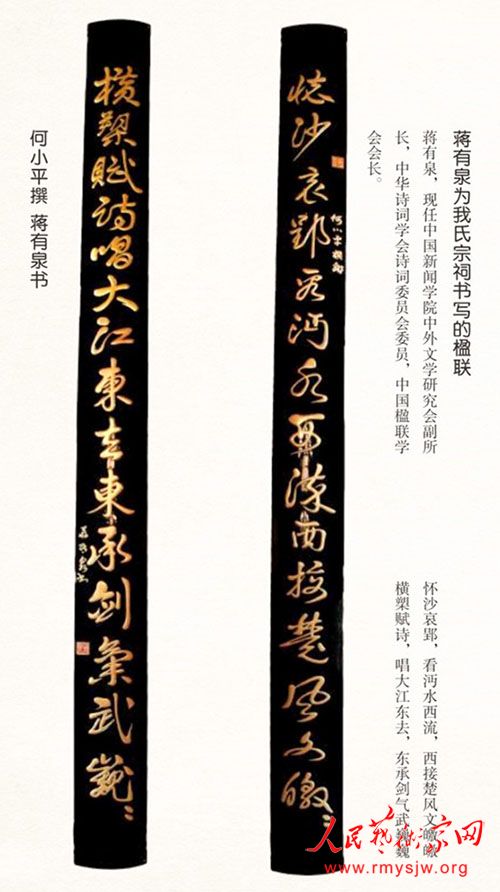 蒋有泉为我氏宗祠书写的楹联
蒋有泉，现任中国新闻学院中外文学研究会副所
长，中华诗词学会诗词委员会委员，中国楹联学
会会长。
怀沙哀郢，看沔水西流，西接楚风文皦皦
横槊赋诗，唱大江东去，东承剑气武巍巍
怀沙哀郢看沔水西流西接楚风文皦〻
何小平撰句
横槊賦詩唱大江東去東承剑氣武巍〻
何小平撰 蒋有泉书
人民艺术家网
www.rmysjw.org